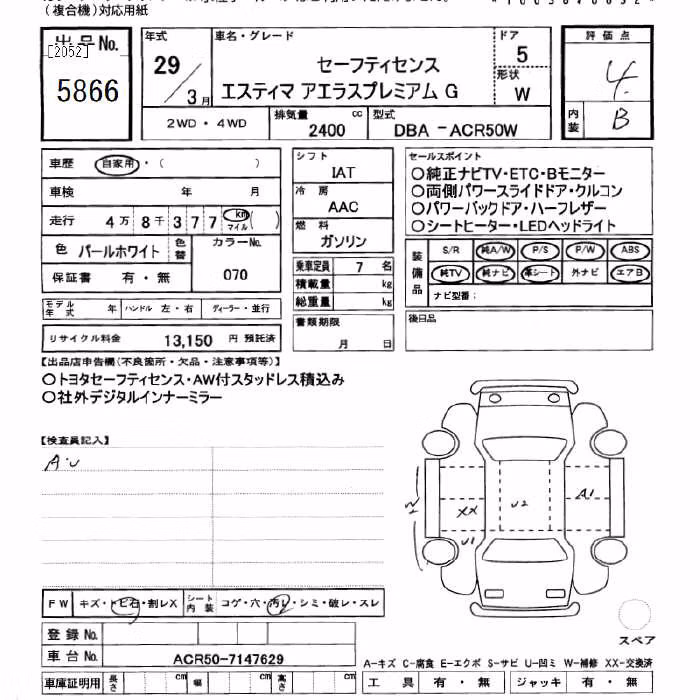 (複合機)対応用紙
出品No.
[2052]
5866
年式
29/3月
車名・グレード
セーフティセンス
エスティマ アエラスプレミアム G
ドア
5
形状
W
評価点
4
内装
B
2WD・4WD
排気量
2400
cc
型式
DBA -ACR50W
車歴
自家用・( )
車検
年 月
走行
4万8千377
km
マイル
( )
色
パールホワイト
色替
カラーNo.
070
保証書
有・無
シフト
IAT
冷房
AAC
燃料
ガソリン
乗車定員
7 名
積載量
kg
総重量
kg
書類期限
月 日
セールスポイント
○純正ナビTV・ETC・Bモニター
○両側パワースライドドア・クルコン
○パワーバックドア・ハーフレザー
○シートヒーター・LEDヘッドライト
装備品
S/R 純A/W P/S P/W ABS
純TV 純ナビ 革シート 外ナビ エアB
ナビ型番:
モデル年式
年
ハンドル 左・右
ディーラー・並行
リサイクル料金
13,150
円 預託済
後日品
【出品店申告欄(不良箇所・欠品・注意事項等)】
○トヨタセーフティセンス・AW付スタッドレス積込み
○社外デジタルインナーミラー
【検査員記入】
A・U
XX
U2
A1
U1
FW
キズ・トビ石・割レX
シート内装
コゲ・穴・汚レ・シミ・破レ・スレ
登録No.
車台No.
ACR50-7147629
スペア
A-キズ C-腐食 E-エクボ S-サビ U-凹ミ W-補修 XX-交換済
車庫証明用
長さ
cm
幅
cm
高さ
cm
工具
有・無
ジャッキ
有・無